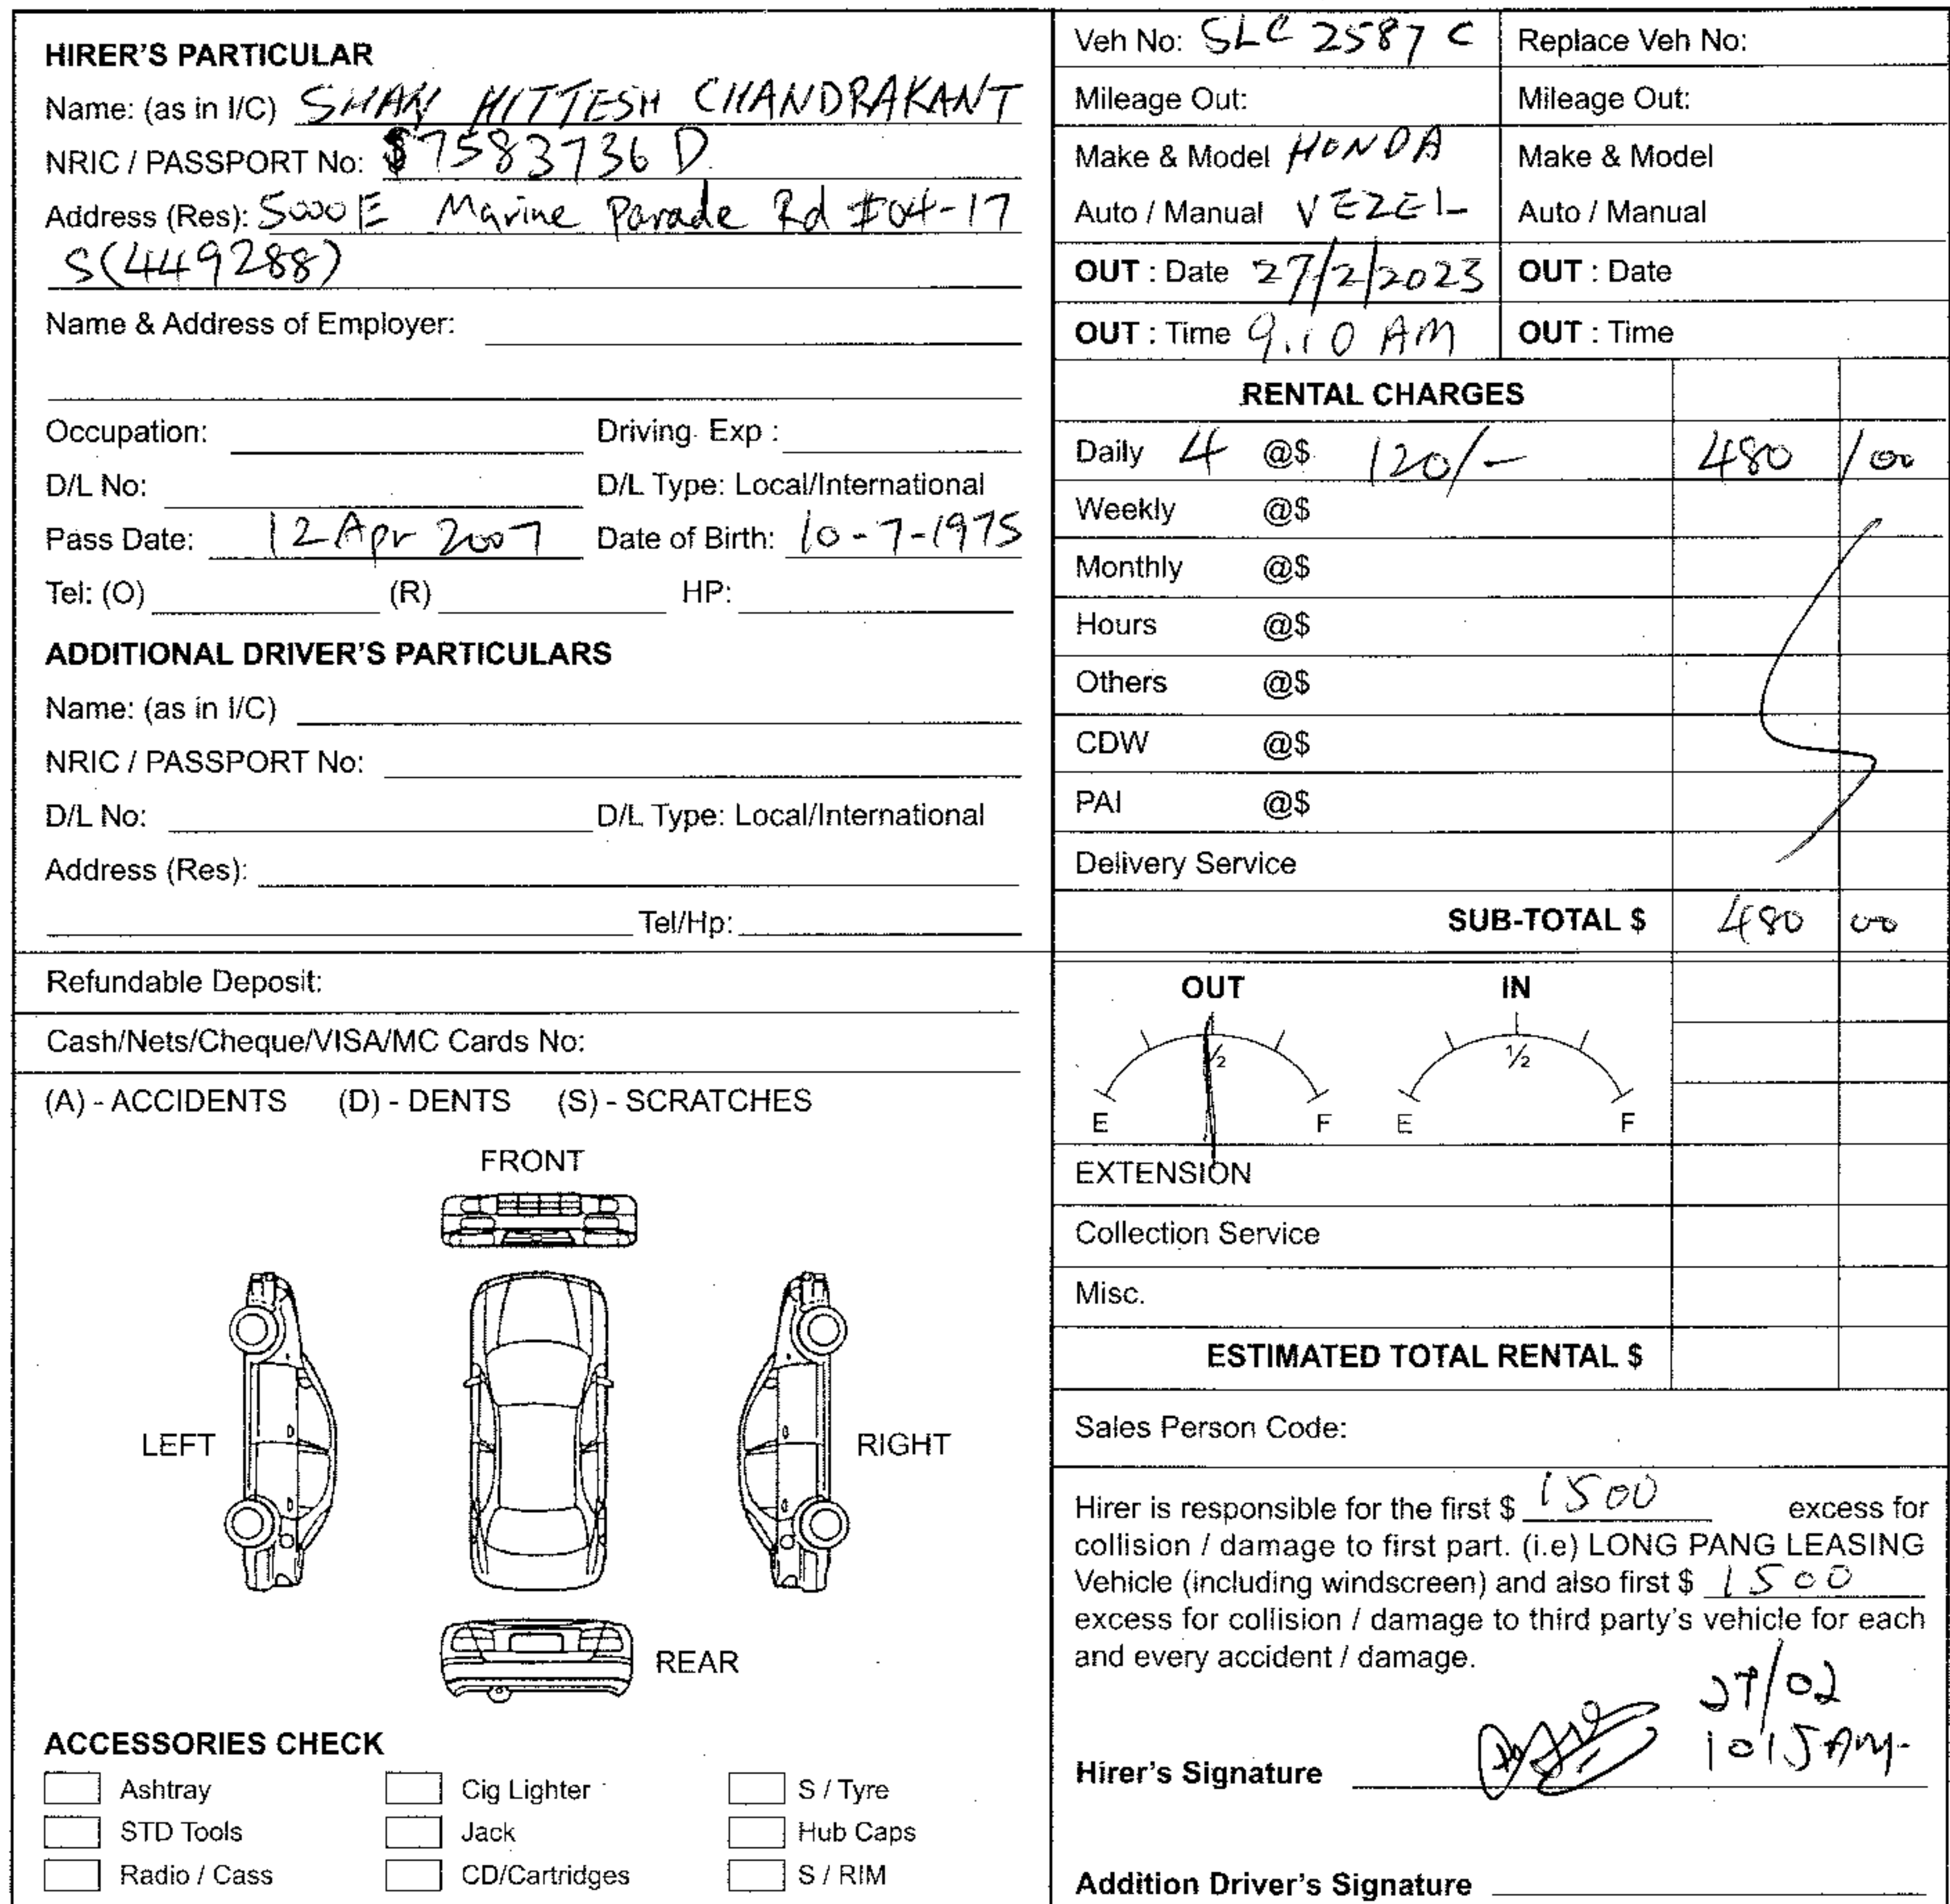 HIRER'S PARTICULAR
Name: (as in I/C) SHAH HITTESH CHANDRAKANT
NRIC / PASSPORT No: S7583736D
Address (Res): 5000E Marine Parade Rd #04-17
S(449288)
Name & Address of Employer:
Occupation: Driving Exp :
D/L No: D/L Type: Local/International
Pass Date: 12 Apr 2007 Date of Birth: 10-7-1975
Tel: (O) (R) HP:
ADDITIONAL DRIVER'S PARTICULARS
Name: (as in I/C)
NRIC / PASSPORT No:
D/L No: D/L Type: Local/International
Address (Res):
Tel/Hp:
Refundable Deposit:
Cash/Nets/Cheque/VISA/MC Cards No:
(A) - ACCIDENTS (D) - DENTS (S) - SCRATCHES
FRONT
LEFT
RIGHT
REAR
ACCESSORIES CHECK
Ashtray Cig Lighter S / Tyre
STD Tools Jack Hub Caps
Radio / Cass CD/Cartridges S / RIM
Veh No: SLC 2587 C Replace Veh No:
Mileage Out: Mileage Out:
Make & Model HONDA Make & Model
Auto / Manual VEZEL Auto / Manual
OUT : Date 27/2/2023 OUT : Date
OUT : Time 9.10 AM OUT : Time
RENTAL CHARGES
Daily 4 @$ 120/- 480 /00
Weekly @$
Monthly @$
Hours @$
Others @$
CDW @$
PAI @$
Delivery Service
SUB-TOTAL $ 480 00
OUT IN
½ ½
E F E F
EXTENSION
Collection Service
Misc.
ESTIMATED TOTAL RENTAL $
Sales Person Code:
Hirer is responsible for the first $ 1500 excess for
collision / damage to first part. (i.e) LONG PANG LEASING
Vehicle (including windscreen) and also first $ 1500
excess for collision / damage to third party's vehicle for each
and every accident / damage.
27/02
Hirer's Signature 1015 AM
Addition Driver's Signature